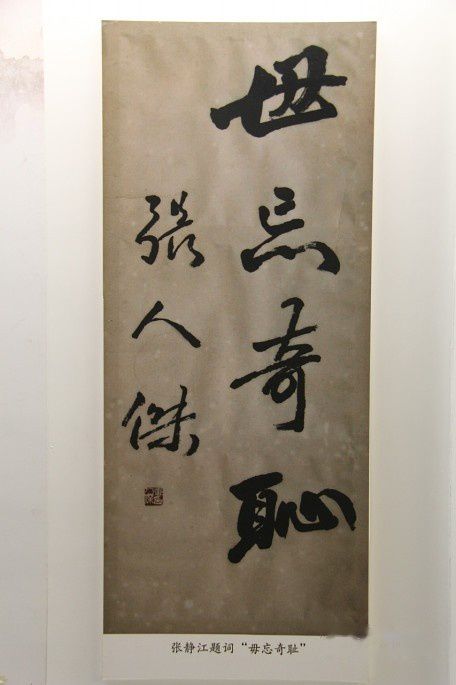 毋忘奇恥
張人傑
张静江题词“毋忘奇耻”